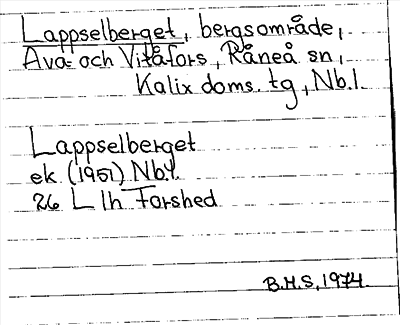 Lappselberget, bergsområde,
Ava- och Vitåfors, Råneå sn,
Kalix doms. tg, Nb.l.
Lappselberget
ek. (1951) Nb.l.
26 L lh Forshed
B.H.S, 1974.